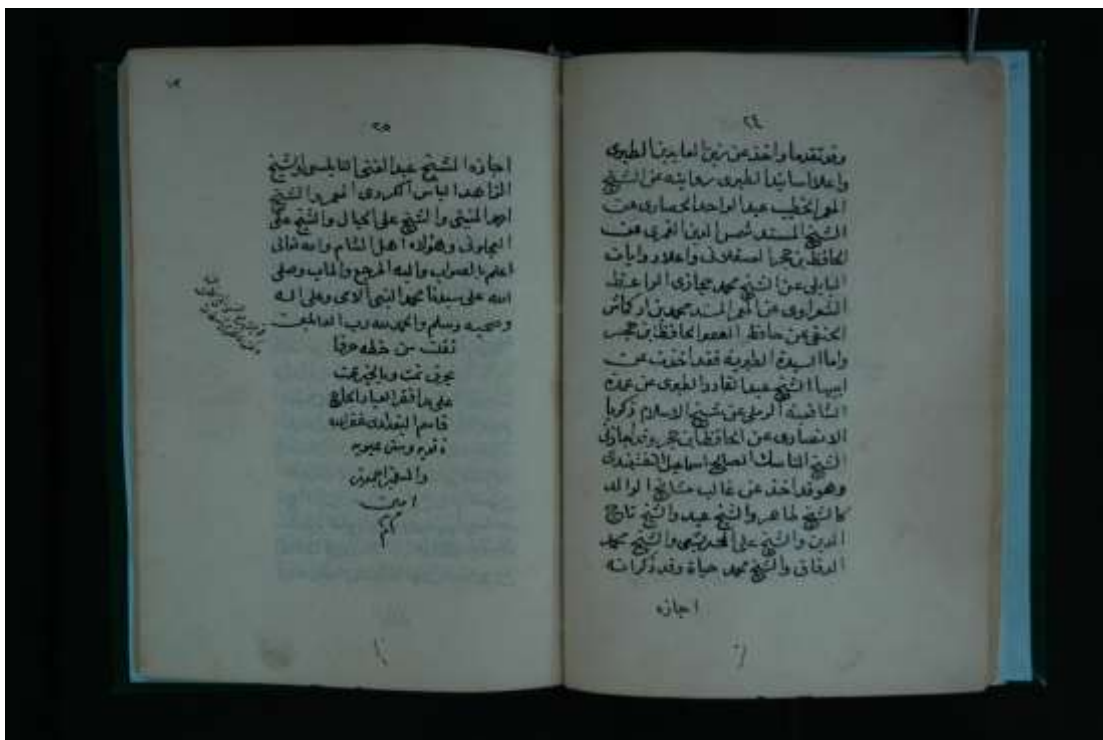 ٢٤
وقد تقدما واخذ عن زين العابدين الطبرى
واعلا اسانيد الطبرى روايته عن الشيخ
المعمر الخطيب عبد الواحد الحصارى عن
الشيخ المسند شمس الدين الغمرى عن
الحافظ بن حجر العسقلانى واعلا روايات
البابلى عن الشيخ محمد حجازى الواعظ
الشعراوى عن المعمر المسند محمد بن اركماش
الحنفى عن حافظ العصر الحافظ بن حجر
واما السيدة الطبرية فقد اخذت عن
ابيها الشيخ عبد القادر الطبرى عن عمدة
الشافعية الرملى عن شيخ الاسلام زكريا
الانصارى عن الحافظ بن حجر وقد اجازنى
الشيخ الناسك الصالح اسماعيل النقشبندى
وهو قد اخذ عن غالب مشائخ الوالد
كالشيخ طاهر والشيخ عيد والشيخ تاج
الدين والشيخ على الحديثمى والشيخ محمد
الدقاق والشيخ محمد حياة وقد ذكر انه
اجازه
٢٥
اجازه الشيخ عبد الغنى النابلسى والشيخ
الزاهد الياس الكردى المعمر والشيخ
احمد المنينى والشيخ على الحبال والشيخ
العجلونى وهؤلاء اهل الشام والله تعالى
اعلم بالصواب واليه المرجع والماب وصلى
الله على سيدنا محمد النبى الامى وعلى اله
وصحبه وسلم والحمد لله رب العالمين
نقلت من خطه حرفا
بحرف تمت وبالخير عمت
على يد افقر العباد الحاج
قاسم البغدادى غفر الله
ذنوبه وستر عيوبه
والمسلمين اجمعين
امين